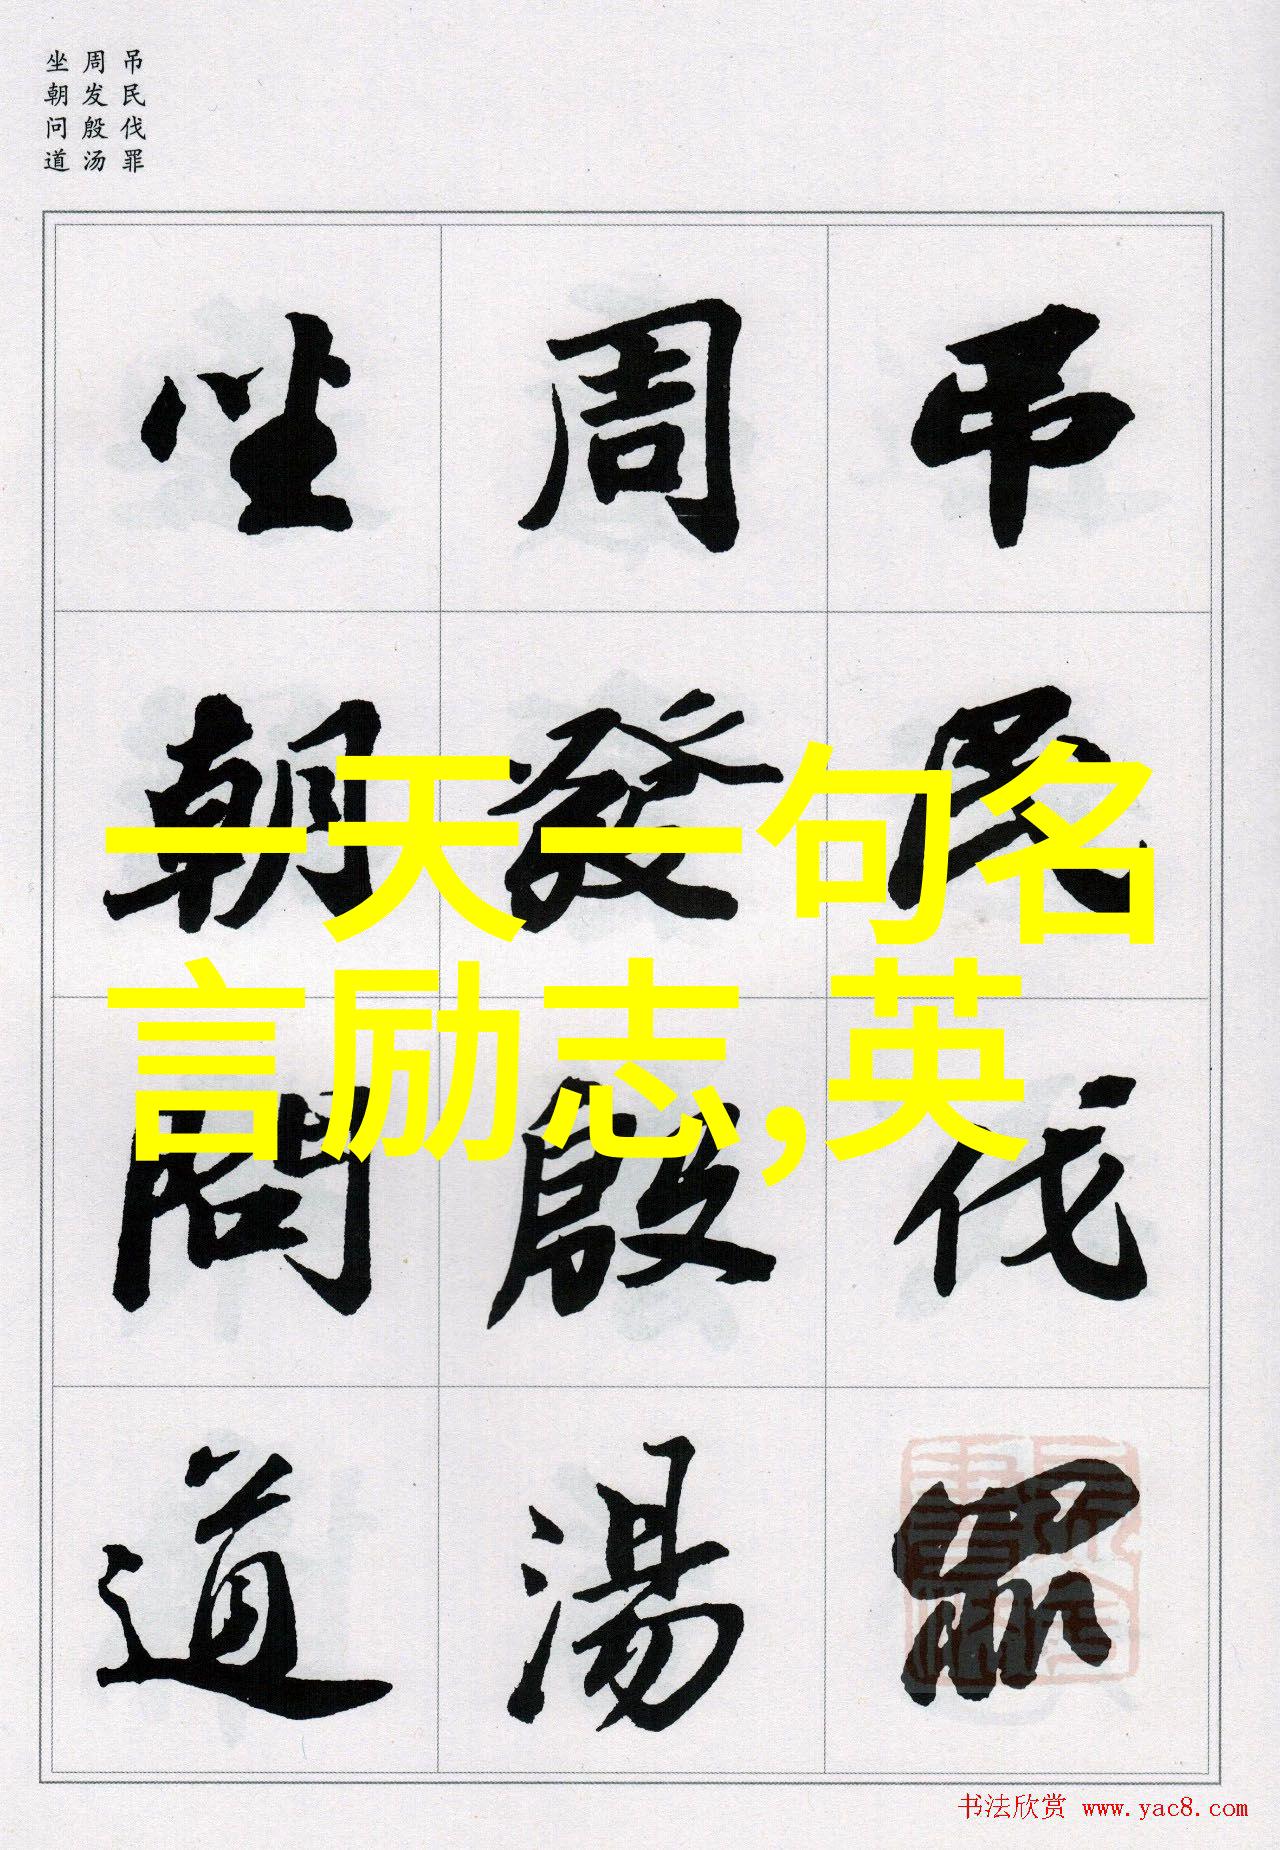 吊民伐罪
周发殷汤
坐朝问道
吊民伐罪
周發殷湯
坐朝問道
一天一句名
言励志,英
书法欣赏 www.yac8.com